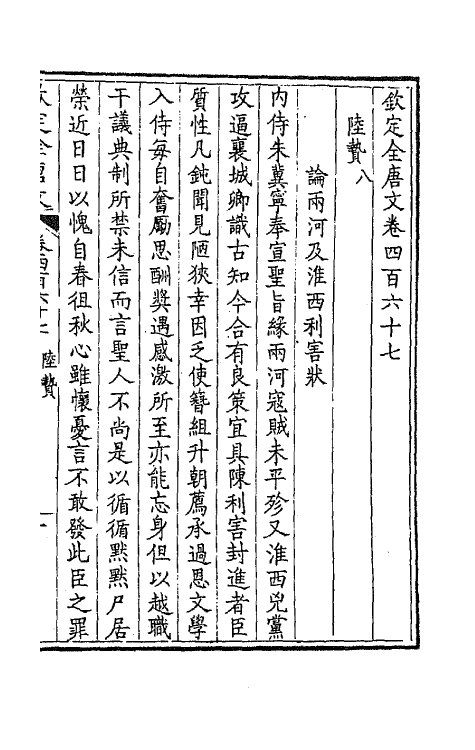 欽定全唐文卷四百六十七
陸贄八
論兩河及淮西利害狀
內侍朱冀寧奉宣聖旨緣兩河寇賊未平殄又淮西兇黨
攻逼襄城卿識古知今合有良策宜具陳利害封進者臣
質性凡鈍聞見陋狹幸因乏使簪組升朝薦承過恩文學
入侍每自奮勵思酬獎遇感激所至亦能忘身但以越職
干議典制所禁未信而言聖人不尚是以循循默默尸居
榮近日日以愧自春徂秋心雖懷憂言不敢發此臣之罪
欽定全唐文 卷四百六十七 陸贄 一